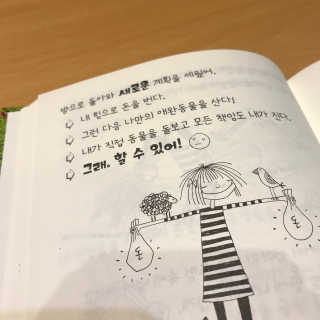 방으로 돌아와 새로운 계획을 세웠어.
내 힘으로 돈을 번다.
그런 다음 나만의 애완동물을 산다!
내가 직접 동물을 돌보고 모든 책임도 내가 진다.
그래, 할 수 있어!
돈
돈